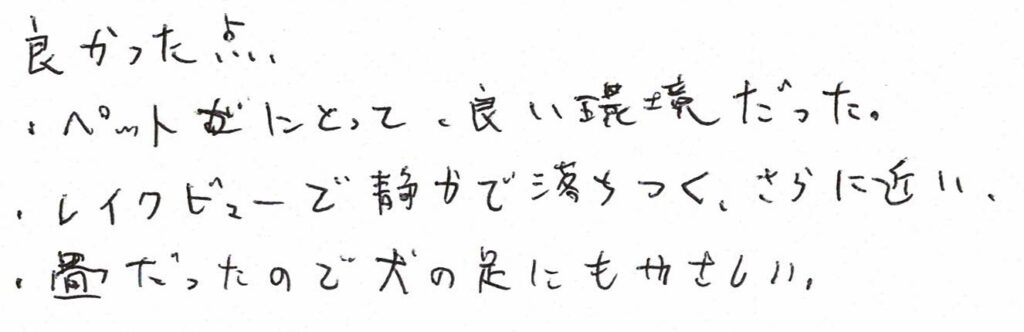 良かった点、
・ペットがにとって、良い環境だった。
・レイクビューで静かで落ちつく、さらに近い、
・畳だったので犬の足にもやさしい、